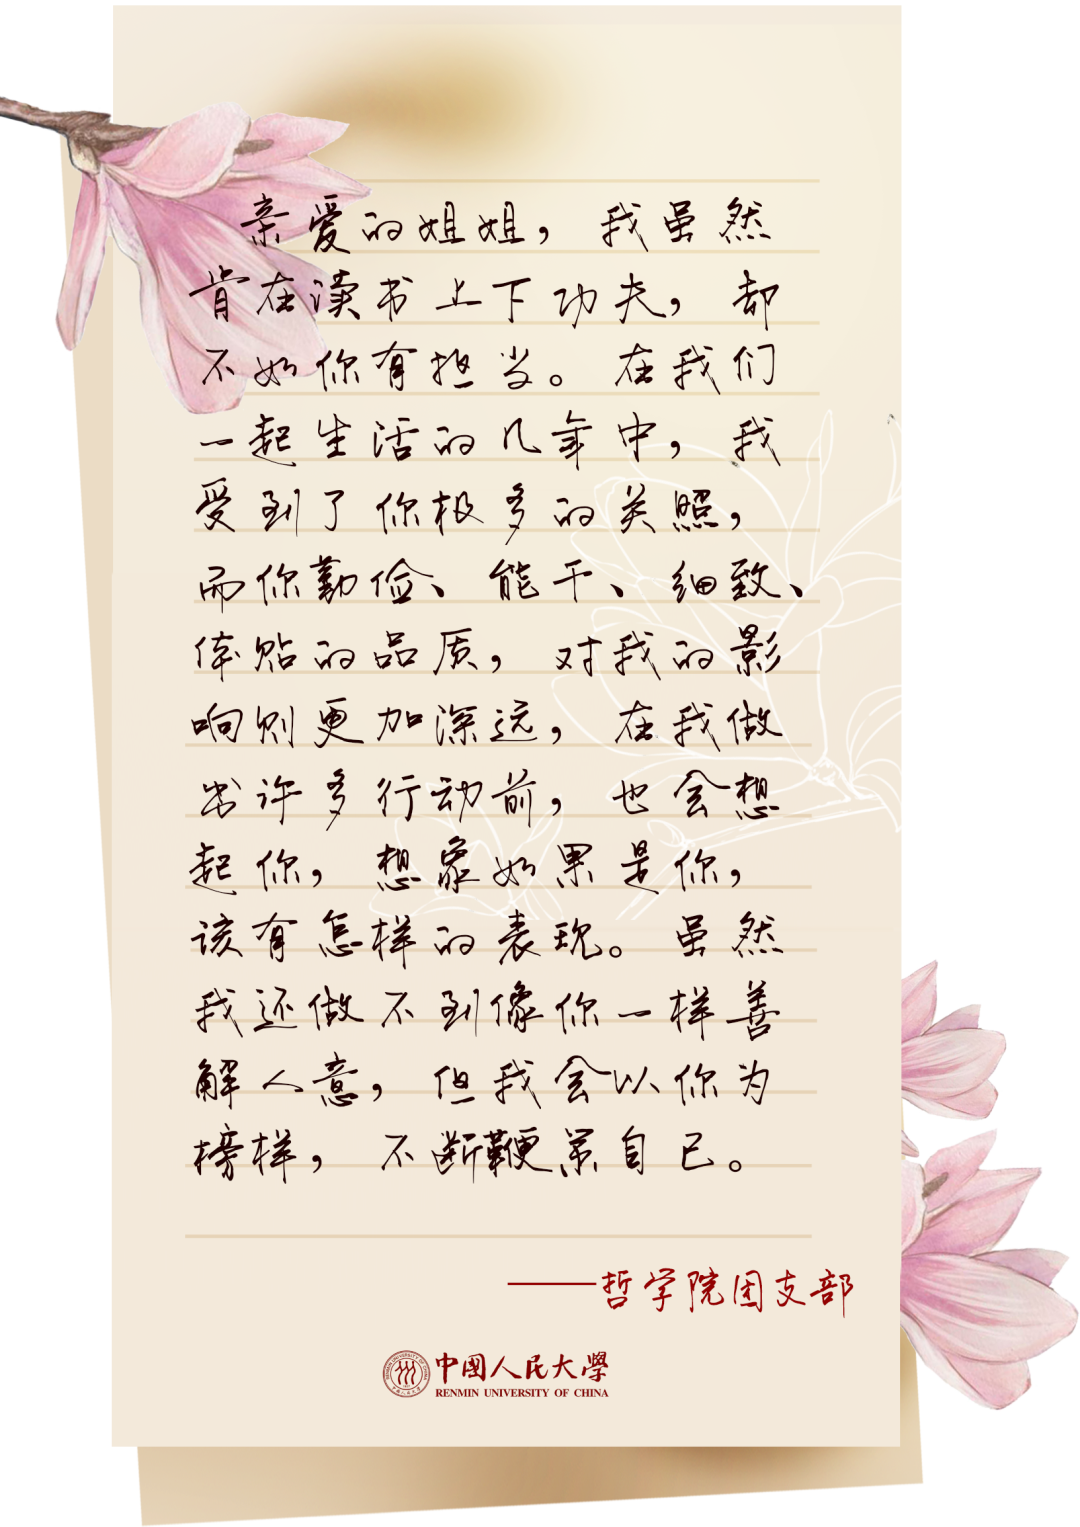 亲爱的姐姐，我虽然
肯在读书上下功夫，却
不如你有担当。在我们
一起生活的几年中，我
受到了你极多的关照，
而你勤俭、能干、细致、
体贴的品质，对我的影
响则更加深远，在我做
出许多行动前，也会想
起你，想象如果是你，
该有怎样的表现。虽然
我还做不到像你一样善
解人意，但我会以你为
榜样，不断鞭策自己。
——哲学院团支部
中國人民大學
RENMIN UNIVERSITY OF CHINA